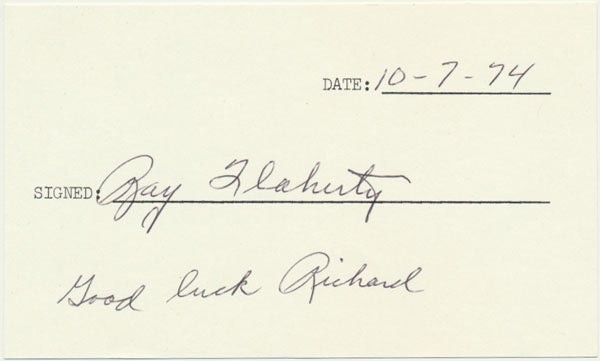 DATE: 10-7-74
SIGNED: Ray Flaherty
Good luck Richard